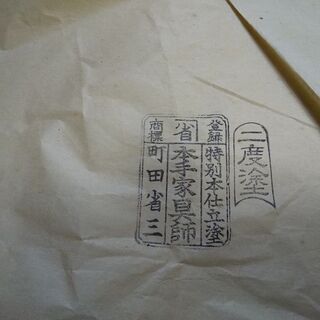 二度塗
登録 特別本仕立塗
省 本手家具師
商標 町田省三